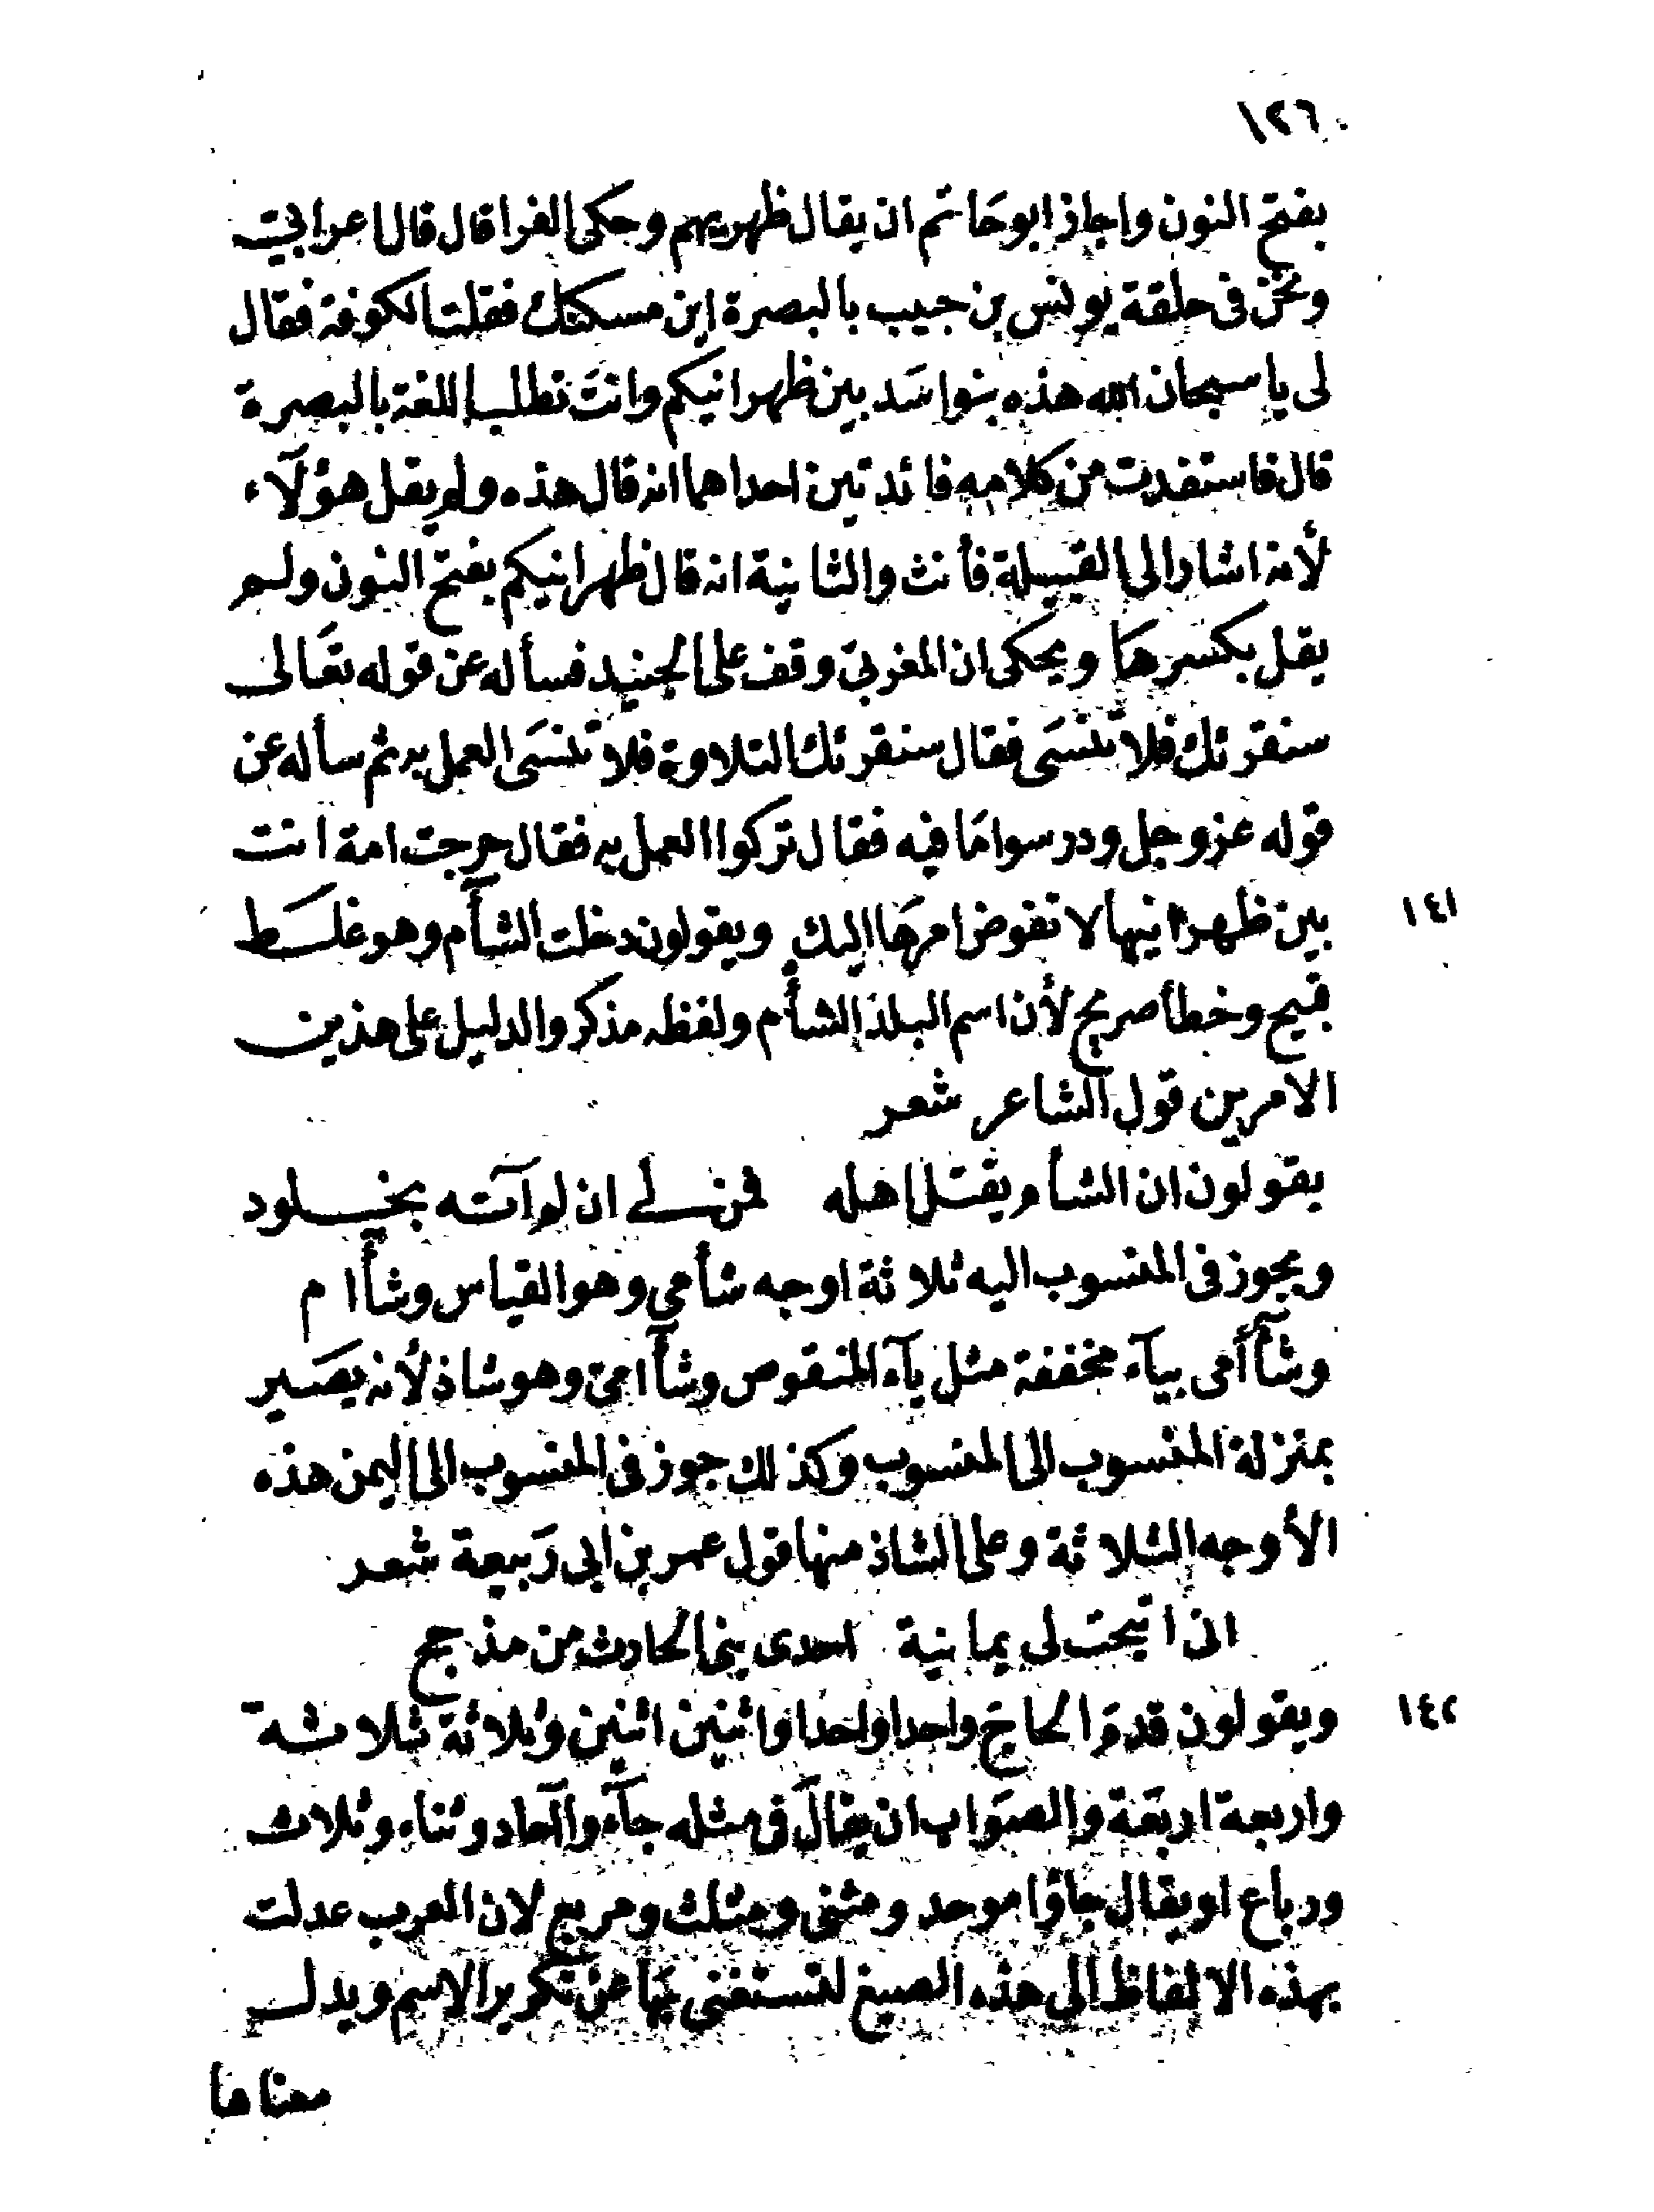 ١٢٦
بفتح النون واجاز ابو حَاتم ان يقال ظهريهم وحكى الفرا قال قال اعرابيّ
ونحن فى حلقة يونس بن حبيب بالبصرة اين مسكنك فقلت الكوفة فقال
لى يا سبحان الله هذه بنوا سَد بين ظهرانيكم وانتَ تطلب اللغة بالبصرة
قال فاستفدت من كلامه فائدتين احداهما انه قال هذه ولم يقل هؤلآء
لأنه اشار الى القبيلة فأنث والثانية انه قال ظهرانيكم بفتح النون ولم
يقل بكسرهَا ويحكى ان المغربيّ وقف على الجنيد فسأله عن قوله تعَالى
سنقرئك فلا تنسَى فقال سنقرئك التلاوة فلا تنسَى العمل به ثم سأله عن
قوله عز وجل ودرسوا مَا فيه فقال تركوا العمل به فقال حرجت امة انت
١٤١ بين ظهرانيها لا تفوض امرهَا اليك ويقولون دخلت الشآم وهو غلَط
قبيح وخطأ صريح لأن اسم البلد الشأم ولفظه مذكر والدليل على هذين
الامرين قول الشاعر شعر
يقولون ان الشأم يقتل اهله فمن لي ان لم آته بخلود
ويجوز فى المنسوب اليه ثلاثة اوجه شأمي وهو القياس وشأام
وشأأمى بيآء مخففة مثل يآء المنقوص وشأامىّ وهو شاذ لأنه يصَير
بمنزلة المنسوب الى المنسوب وكذلك جوز فى المنسوب الى اليمن هذه
الأوجه الثلاثة وعلى الشاذ منها قول عمر بن ابى رَبيعة شعر
انى اتيحت لى يمانية احدى بنى الحارث من مذحج
١٤٢ ويقولون قدمَ الحاجّ واحدا واحدا واثنين اثنين وثلاثة ثلاثة
واربعة اربعَة والصوَاب ان يقالَ فى مثله جآءوا آحاد وثناء وثلاث
ورباع او يقال جاؤا موحد ومثنى ومثلث ومربع لان العرب عدلت
بهذه الالفاظ الى هذه الصيغ لتستغنى بهَا عن تكرير الاسم ويدل
معناها